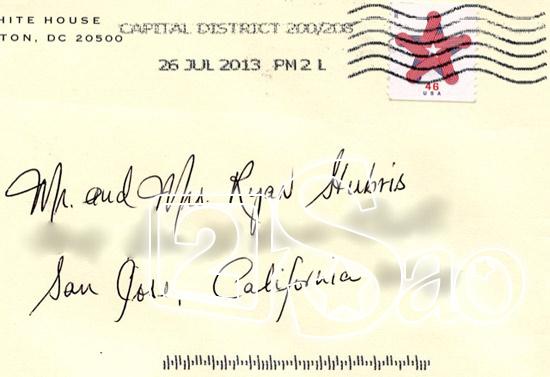 HITE HOUSE
TON, DC 20500
CAPITAL DISTRICT 200/208
26 JUL 2013 PM 2 L
46
USA
Mr. and Mrs. Ryan Hubris
San Jose, California
2!Sao